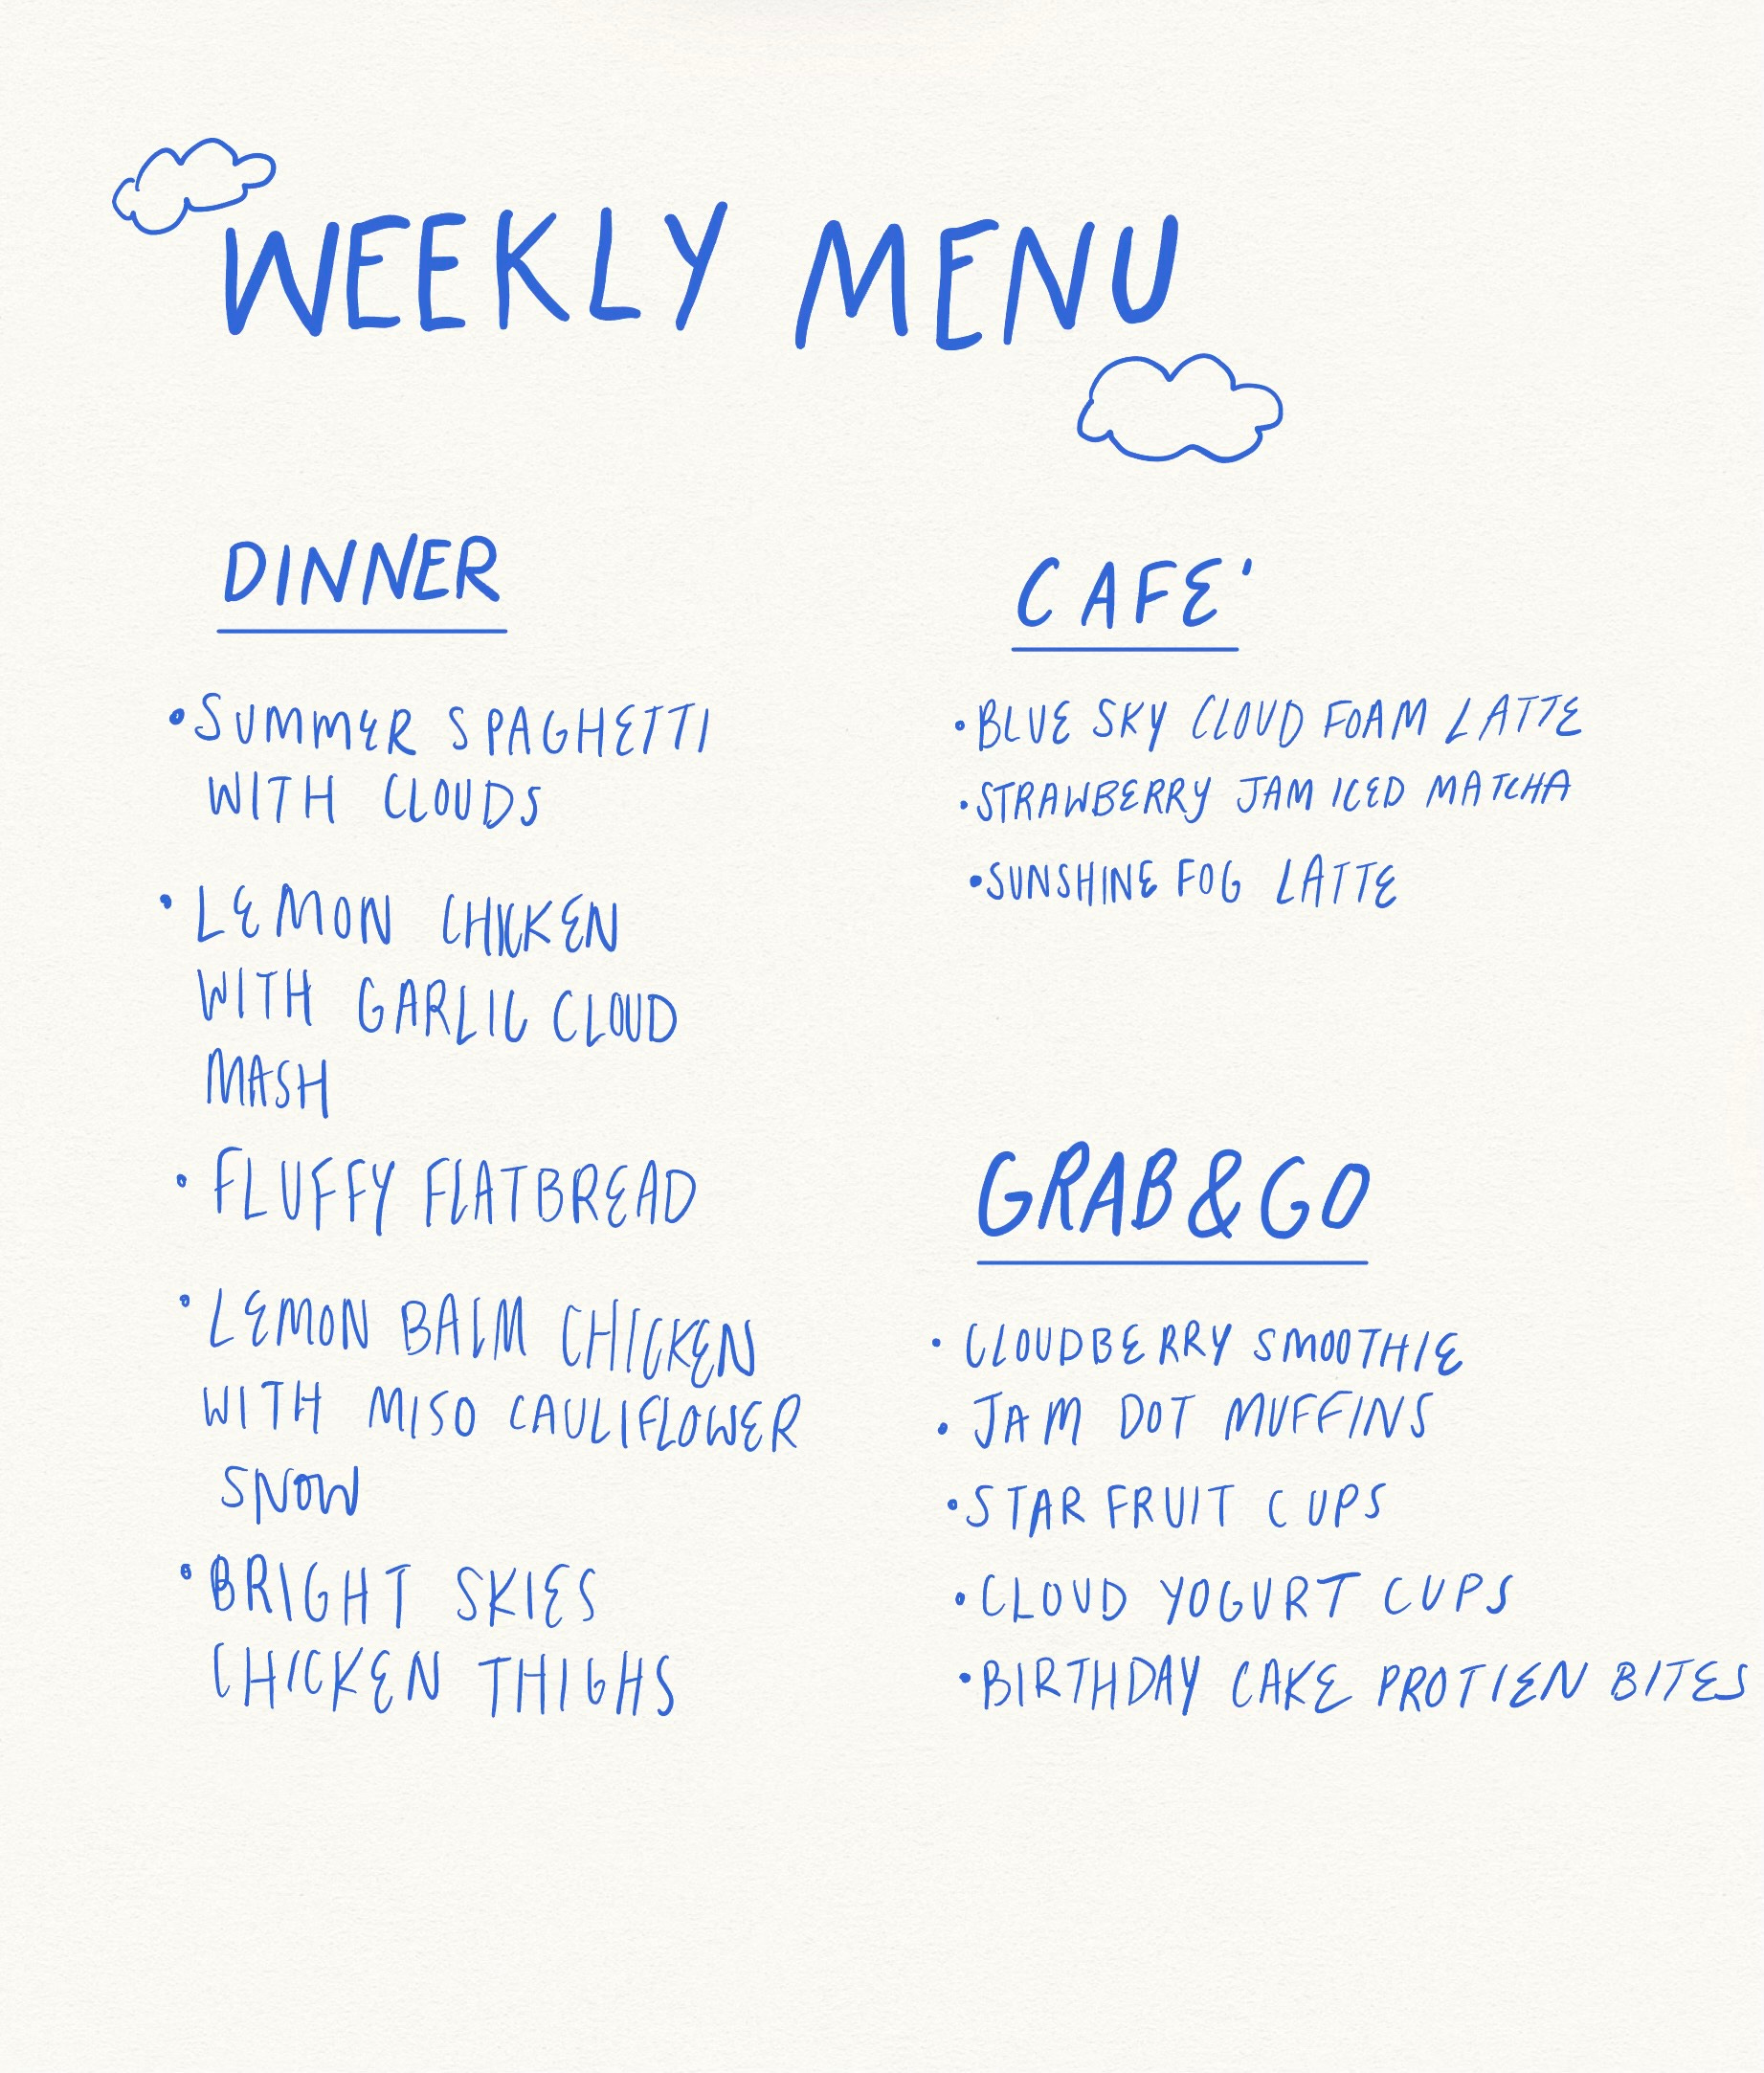 WEEKLY MENU
DINNER
•SUMMER SPAGHETTI
WITH CLOUDS
•LEMON CHICKEN
WITH GARLIC CLOUD
MASH
•FLUFFY FLATBREAD
•LEMON BALM CHICKEN
WITH MISO CAULIFLOWER
SNOW
•BRIGHT SKIES
CHICKEN THIGHS
CAFE'
•BLUE SKY CLOUD FOAM LATTE
•STRAWBERRY JAM ICED MATCHA
•SUNSHINE FOG LATTE
GRAB&GO
•CLOUDBERRY SMOOTHIE
•JAM DOT MUFFINS
•STAR FRUIT CUPS
•CLOUD YOGURT CUPS
•BIRTHDAY CAKE PROTIEN BITES